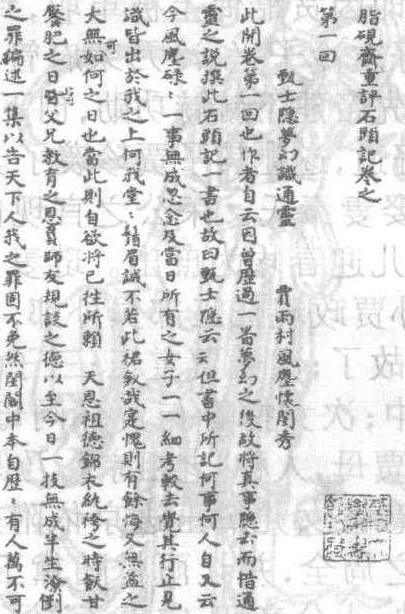 脂硯齋重評石頭記卷之
第一回
甄士隱夢幻識通靈　賈雨村風塵懷閨秀
此開卷第一回也作者自云因曾歷過一番夢幻之後故將真事隱去而借通
靈之說撰此石頭記一書也故曰甄士隱云云但書中所記何事何人自又云
今風塵碌：一事無成忽念及當日所有之女子一一細考較去覺其行止見
識皆出於我之上何我堂：鬚眉誠不若此裙釵哉實愧則有餘悔又無益之
大無可如何之日也當此則自欲將已往所賴　天恩祖德錦衣紈袴之時飫甘
饜肥之日背父兄教育之恩負師友規談之德以至今日一技無成半生潦倒
之罪編述一集以告天下人我之罪固不免然閨閣中本自歷：有人萬不可